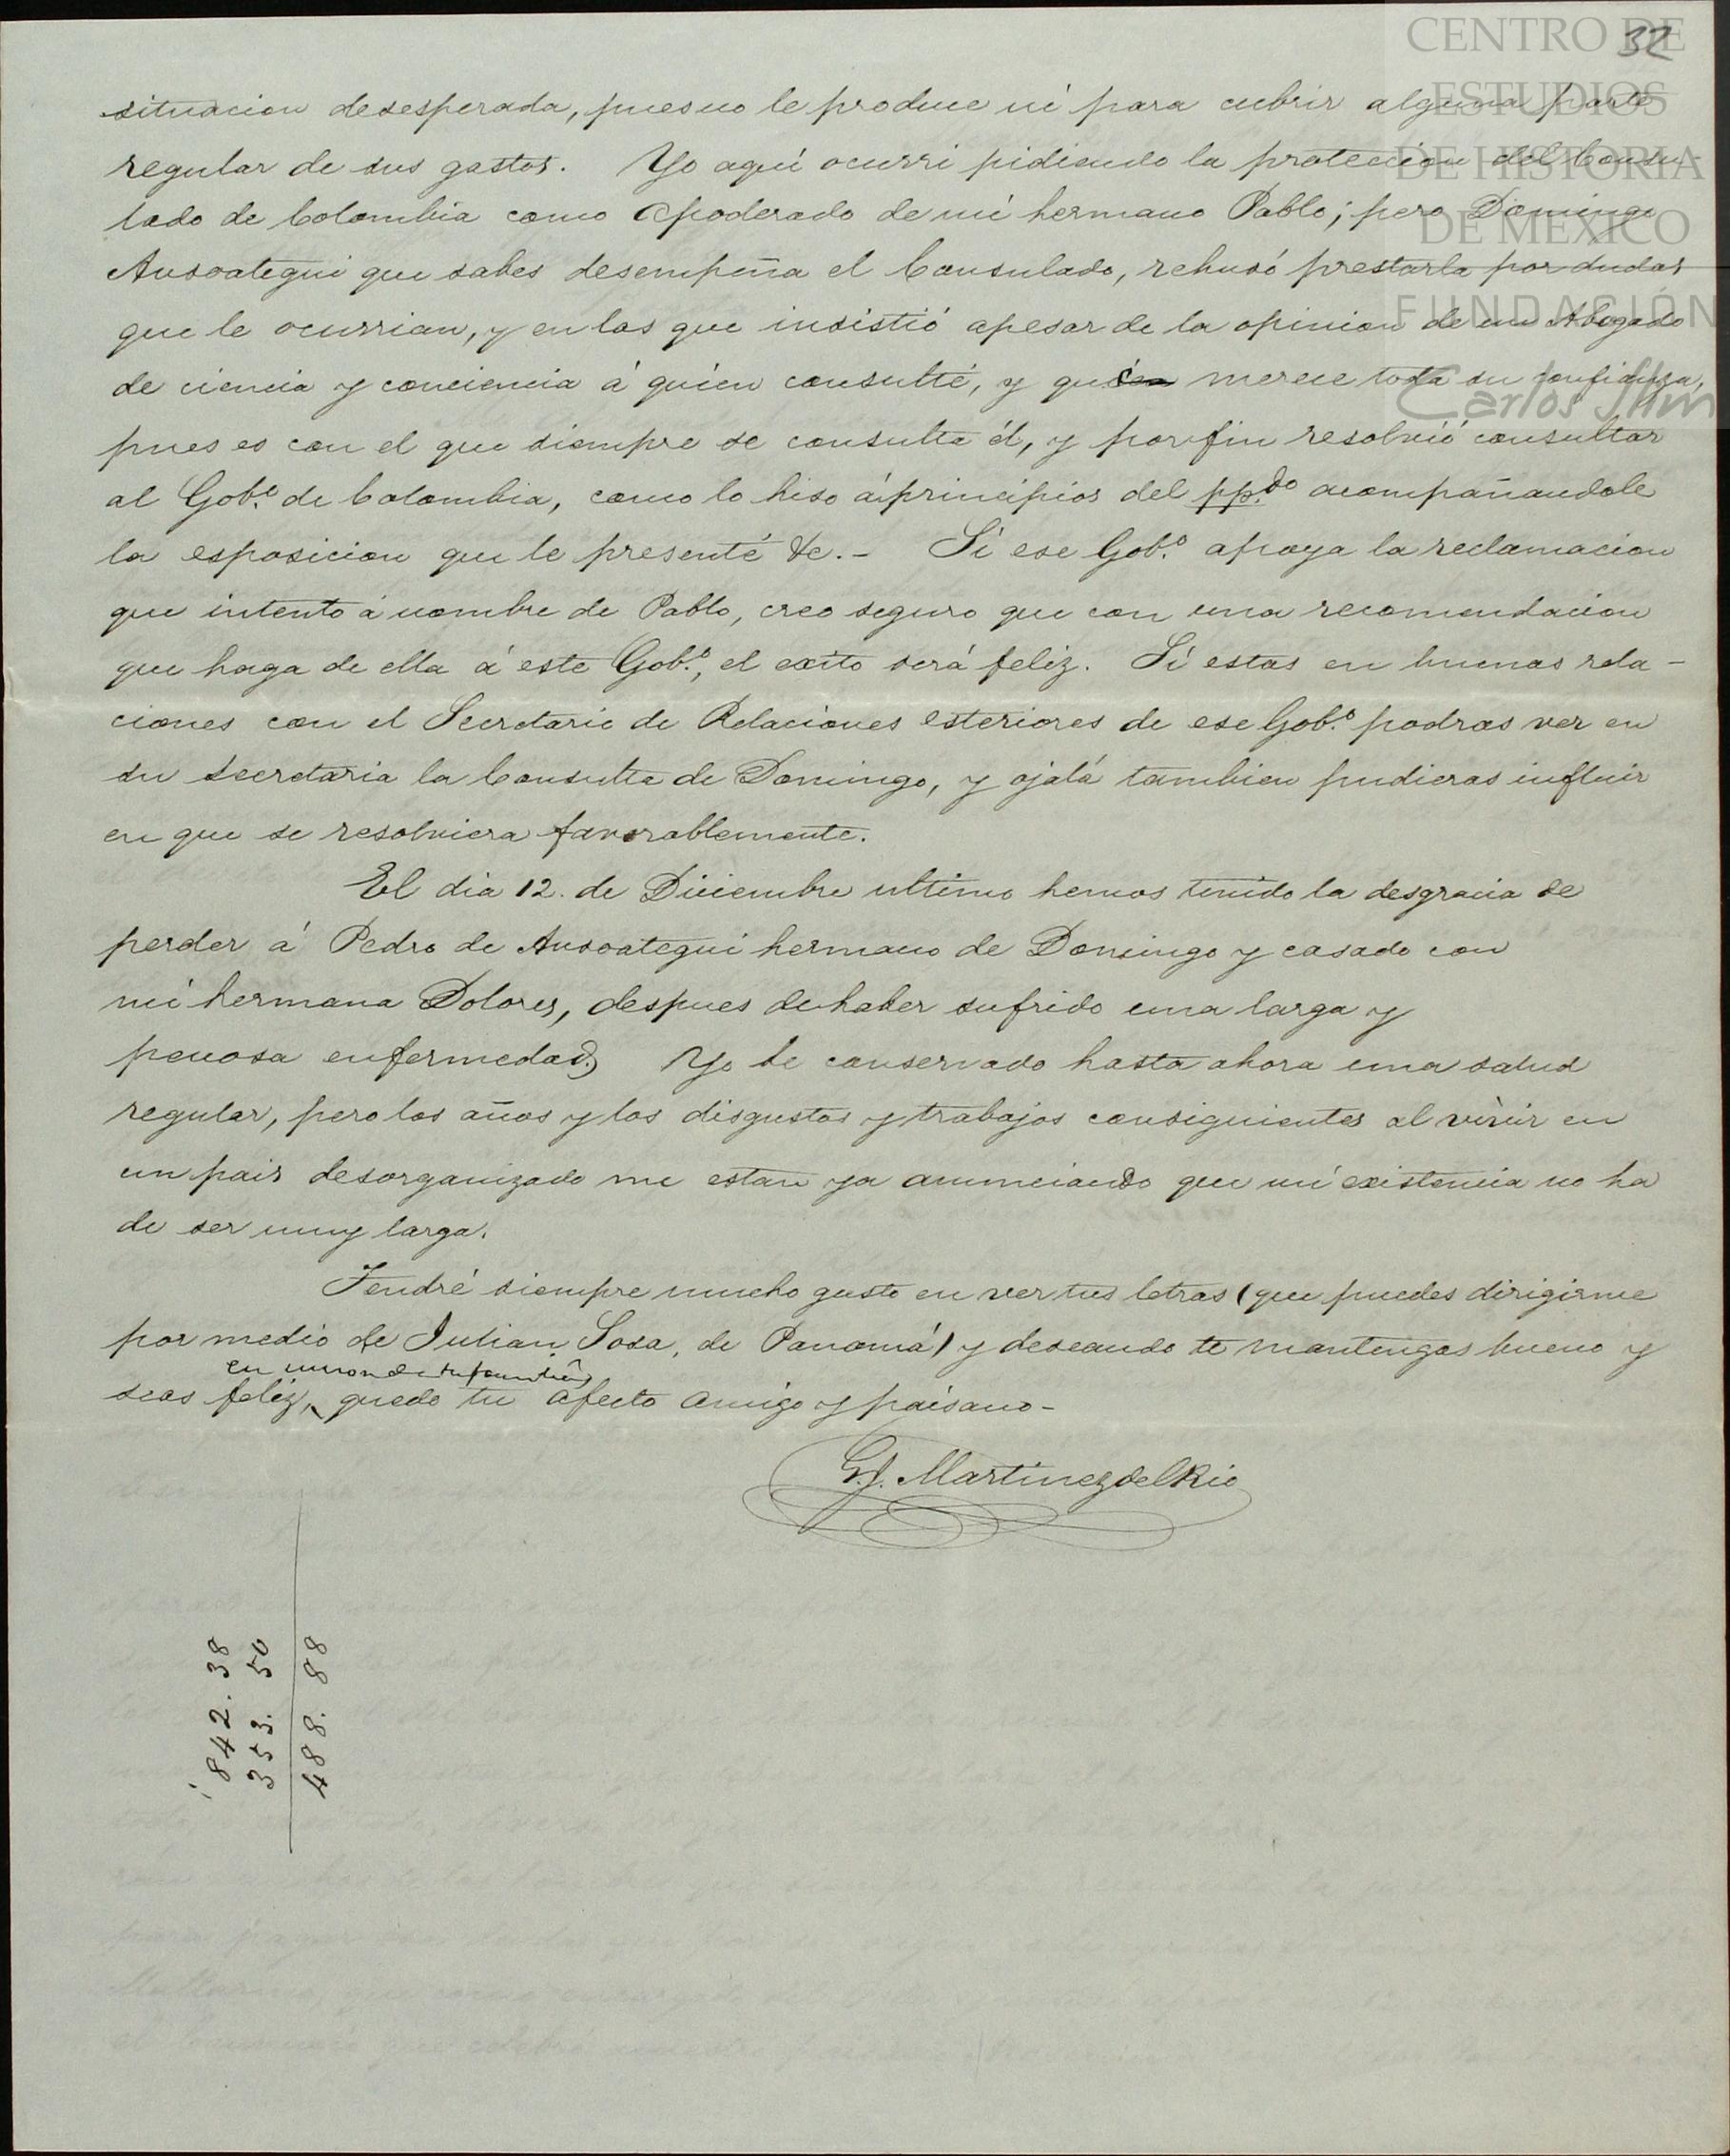 CENTRO DE
ESTUDIOS
DE HISTORIA
DE MEXICO
FUNDACIÓN
Carlos Slim
32
situacion desesperada, pues no le produce ni para cubrir alguna parte
regular de sus gastos. Yo aquí ocurri pidiendo la proteccion del Consu-
lado de Colombia como Apoderado de mi hermano Pablo; pero Domingo
Ansoategui que sabes desempeña el Consulado, rehusó prestarla por dudas
que le ocurrian, y en las que insistió apesar de la opinion de un Abogado
de ciencia y conciencia á quien consulté, y que merece toda su confianza,
pues es con el que siempre se consulta él, y por fin resolvió consultar
al Gob.º de Colombia, como lo hiso á principios del pp.do acompañandole
la esposicion que le presenté &c.- Si ese Gob.º apoya la reclamacion
que intento á nombre de Pablo, creo seguro que con una recomendacion
que haga de ella á este Gob.º, el exito será feliz. Si estas en buenas rela-
ciones con el Secretario de Relaciones esteriores de ese Gob.º podras ver en
su secretaria la Consulta de Domingo, y ojalá tambien pudieras influir
en que se resolviera favorablemente.
El dia 12. de Diciembre ultimo hemos tenido la desgracia de
perder á Pedro de Ansoategui hermano de Domingo y casado con
mi hermana Dolores, despues de haber sufrido una larga y
penosa enfermedad. Yo he conservado hasta ahora una salud
regular, pero los años y los disgustos y trabajos consiguientes al vivir en
un pais desorganizado me estan ya anunciando que mi existencia no ha
de ser muy larga.
Tendré siempre mucho gusto en ver tus letras (que puedes dirigirme
por medio de Julian Sosa, de Panamá) y deseando te mantengas bueno y
en union de tu familia
seas feliz, quedo tu afecto amigo y paisano-
G.J. Martinez del Rio
842.38
353.50
488.88